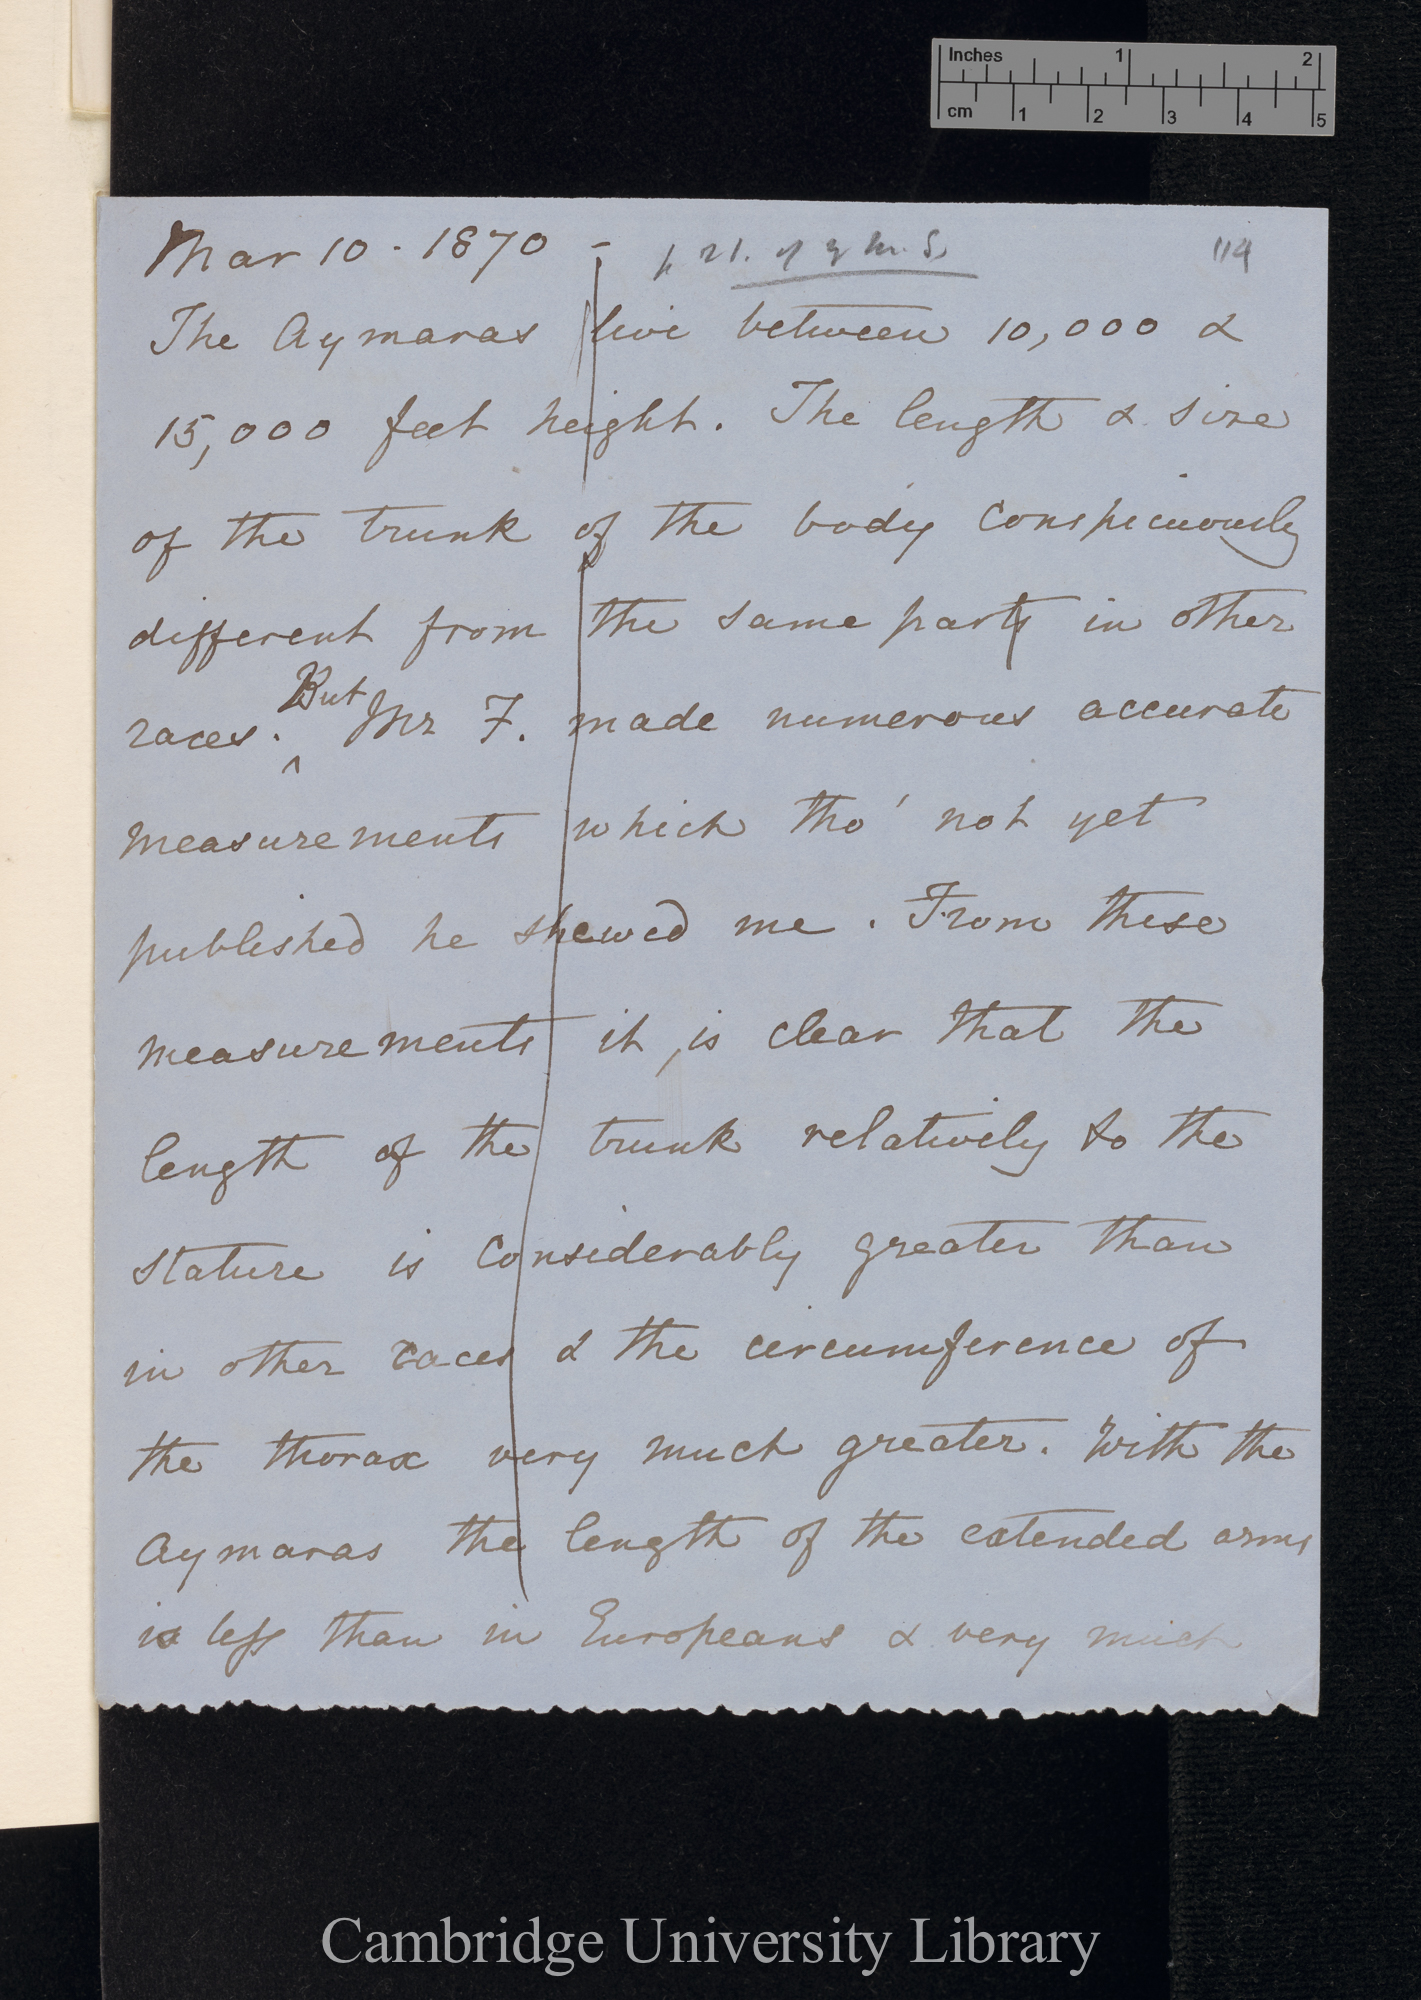 Inches 1 2
cm 1 2 3 4 5
Mar 10 - 1870 - p 21. of M.S. 114
The Aymaras live between 10,000 &
15,000 feet height. The length & size
of the trunk of the body conspicuously
different from the same parts in other
races. But Mr F. made numerous accurate
measurements which tho' not yet
published he shewed me. From these
measurements it, is clear that the
length of the trunk relatively to the
stature is considerably greater than
in other races & the circumference of
the thorax very much greater. With the
Aymaras the length of the extended arms
is less than in Europeans & very much
Cambridge University Library